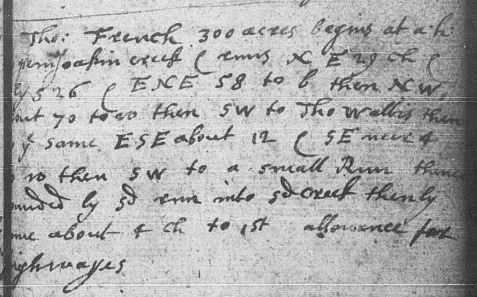 Tho: French 300 acres begins at a h
penisoakin creek ( runs N E 29 ch (
by S 26 ( E N E 58 to b then N W
out 70 to ro then SW to Tho Wallis then
y same E S E about 12 ( S E neer 4
ro then SW to a small Run then
ounded by sd run into sd creek then by
me about 4 ch to 1st allowance for
ighwayes